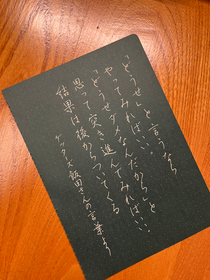 「どうせ」と言うなら
やってみればいい。
「どうせダメなんだから」と
思って突き進んでみればいい
結果は後からついてくる
ゲッターズ飯田さんの言葉より